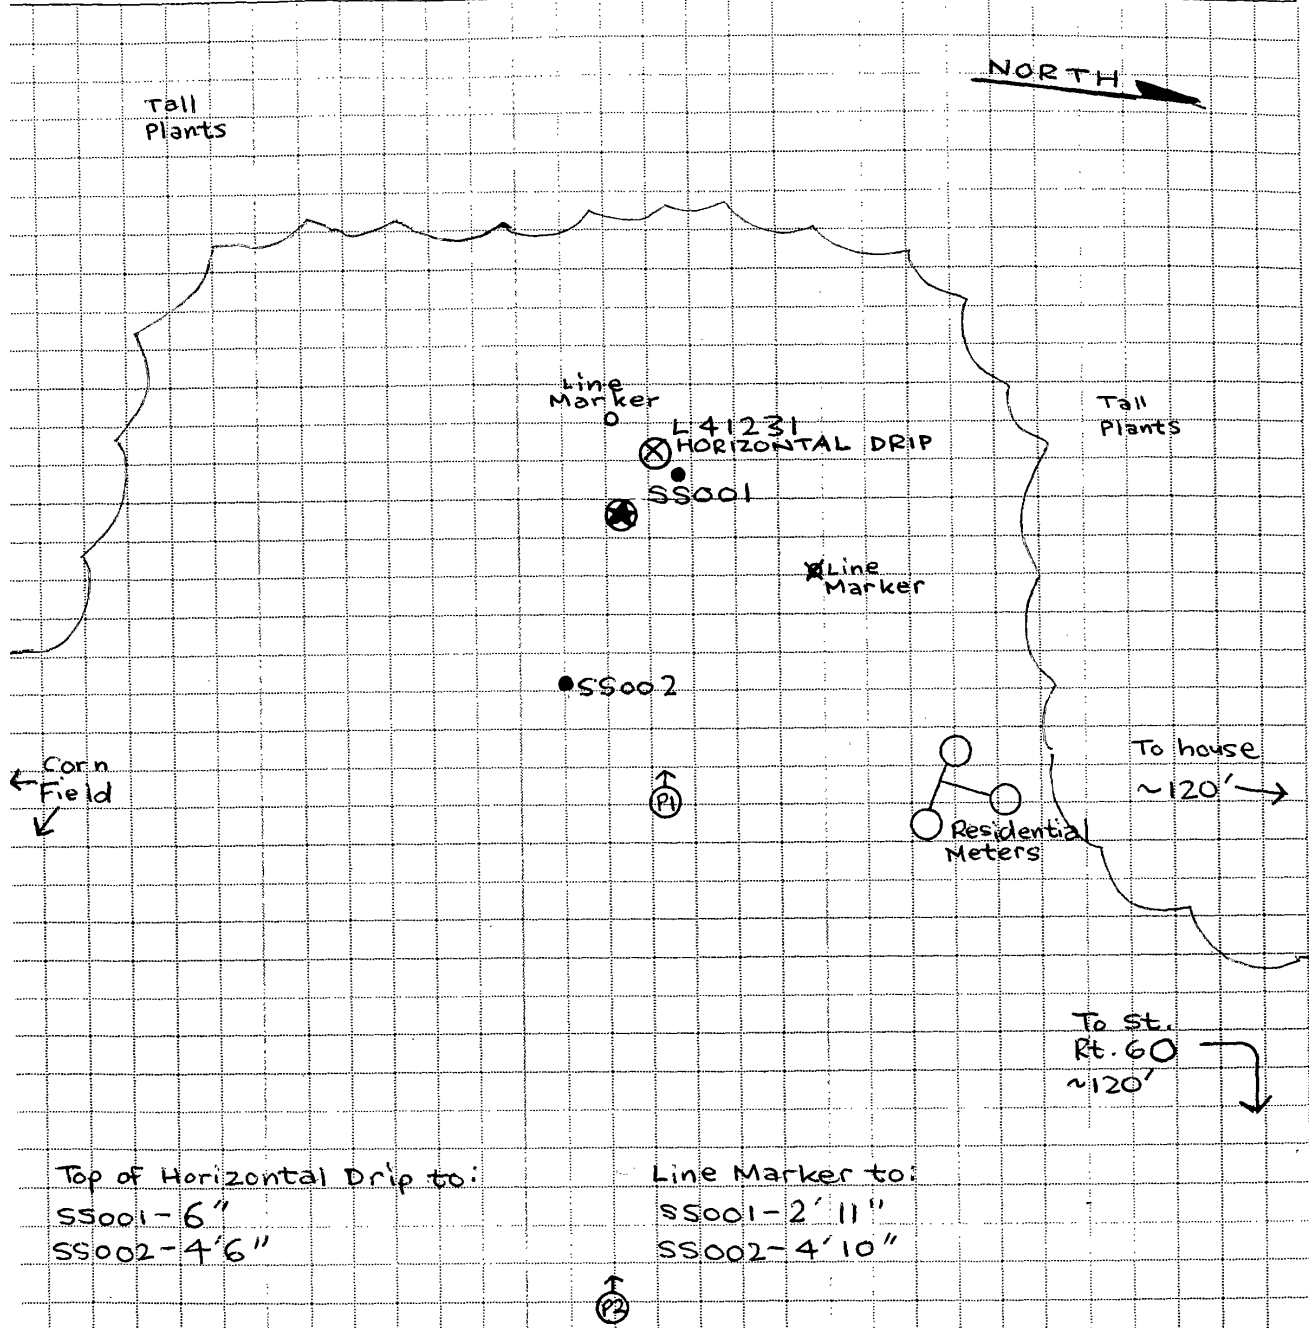 NORTH
Tall
Plants
Line
Marker
L41231
HORIZONTAL DRIP
SS001
Tall
Plants
Line
Marker
SS002
Corn
Field
P1
To house
~120'
Residential
Meters
To St.
Rt. 60
~120'
Top of Horizontal Drip to:
SS001-6"
SS002-4'6"
Line Marker to:
SS001-2'11"
SS002-4'10"
P2